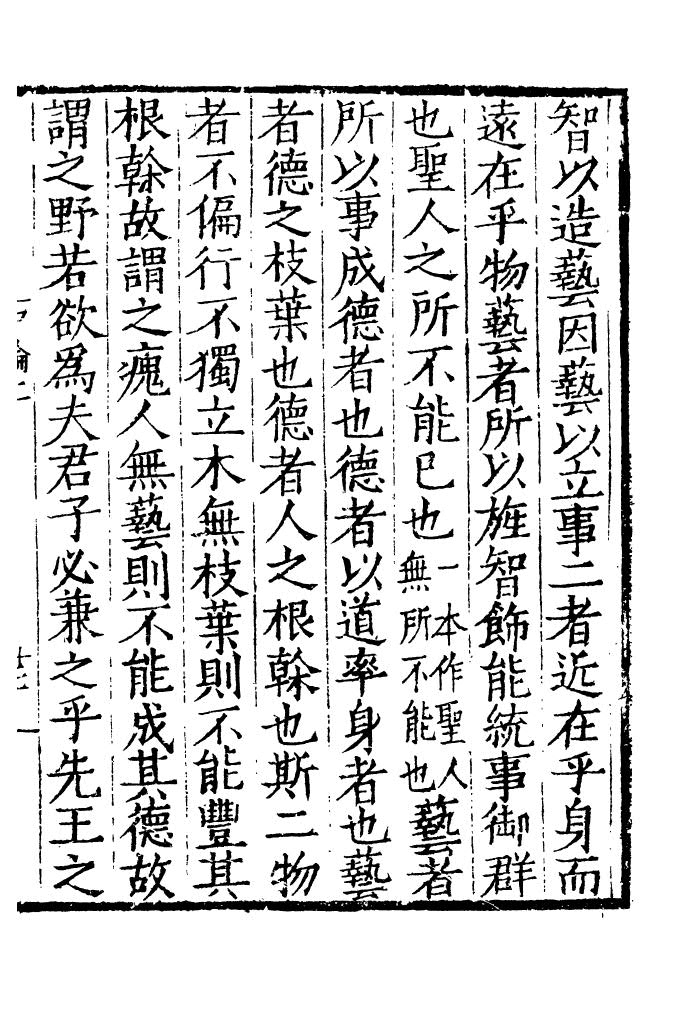 智以造藝因藝以立事二者近在乎身而
遠在乎物藝者所以旌智飾能統事御群
也聖人之所不能已也一本作聖人無所不能也藝者
所以事成德者也德者以道率身者也藝
者德之枝葉也德者人之根榦也斯二物
者不偏行不獨立木無枝葉則不能豐其
根榦故謂之瘣人無藝則不能成其德故
謂之野若欲為夫君子必兼之乎先王之